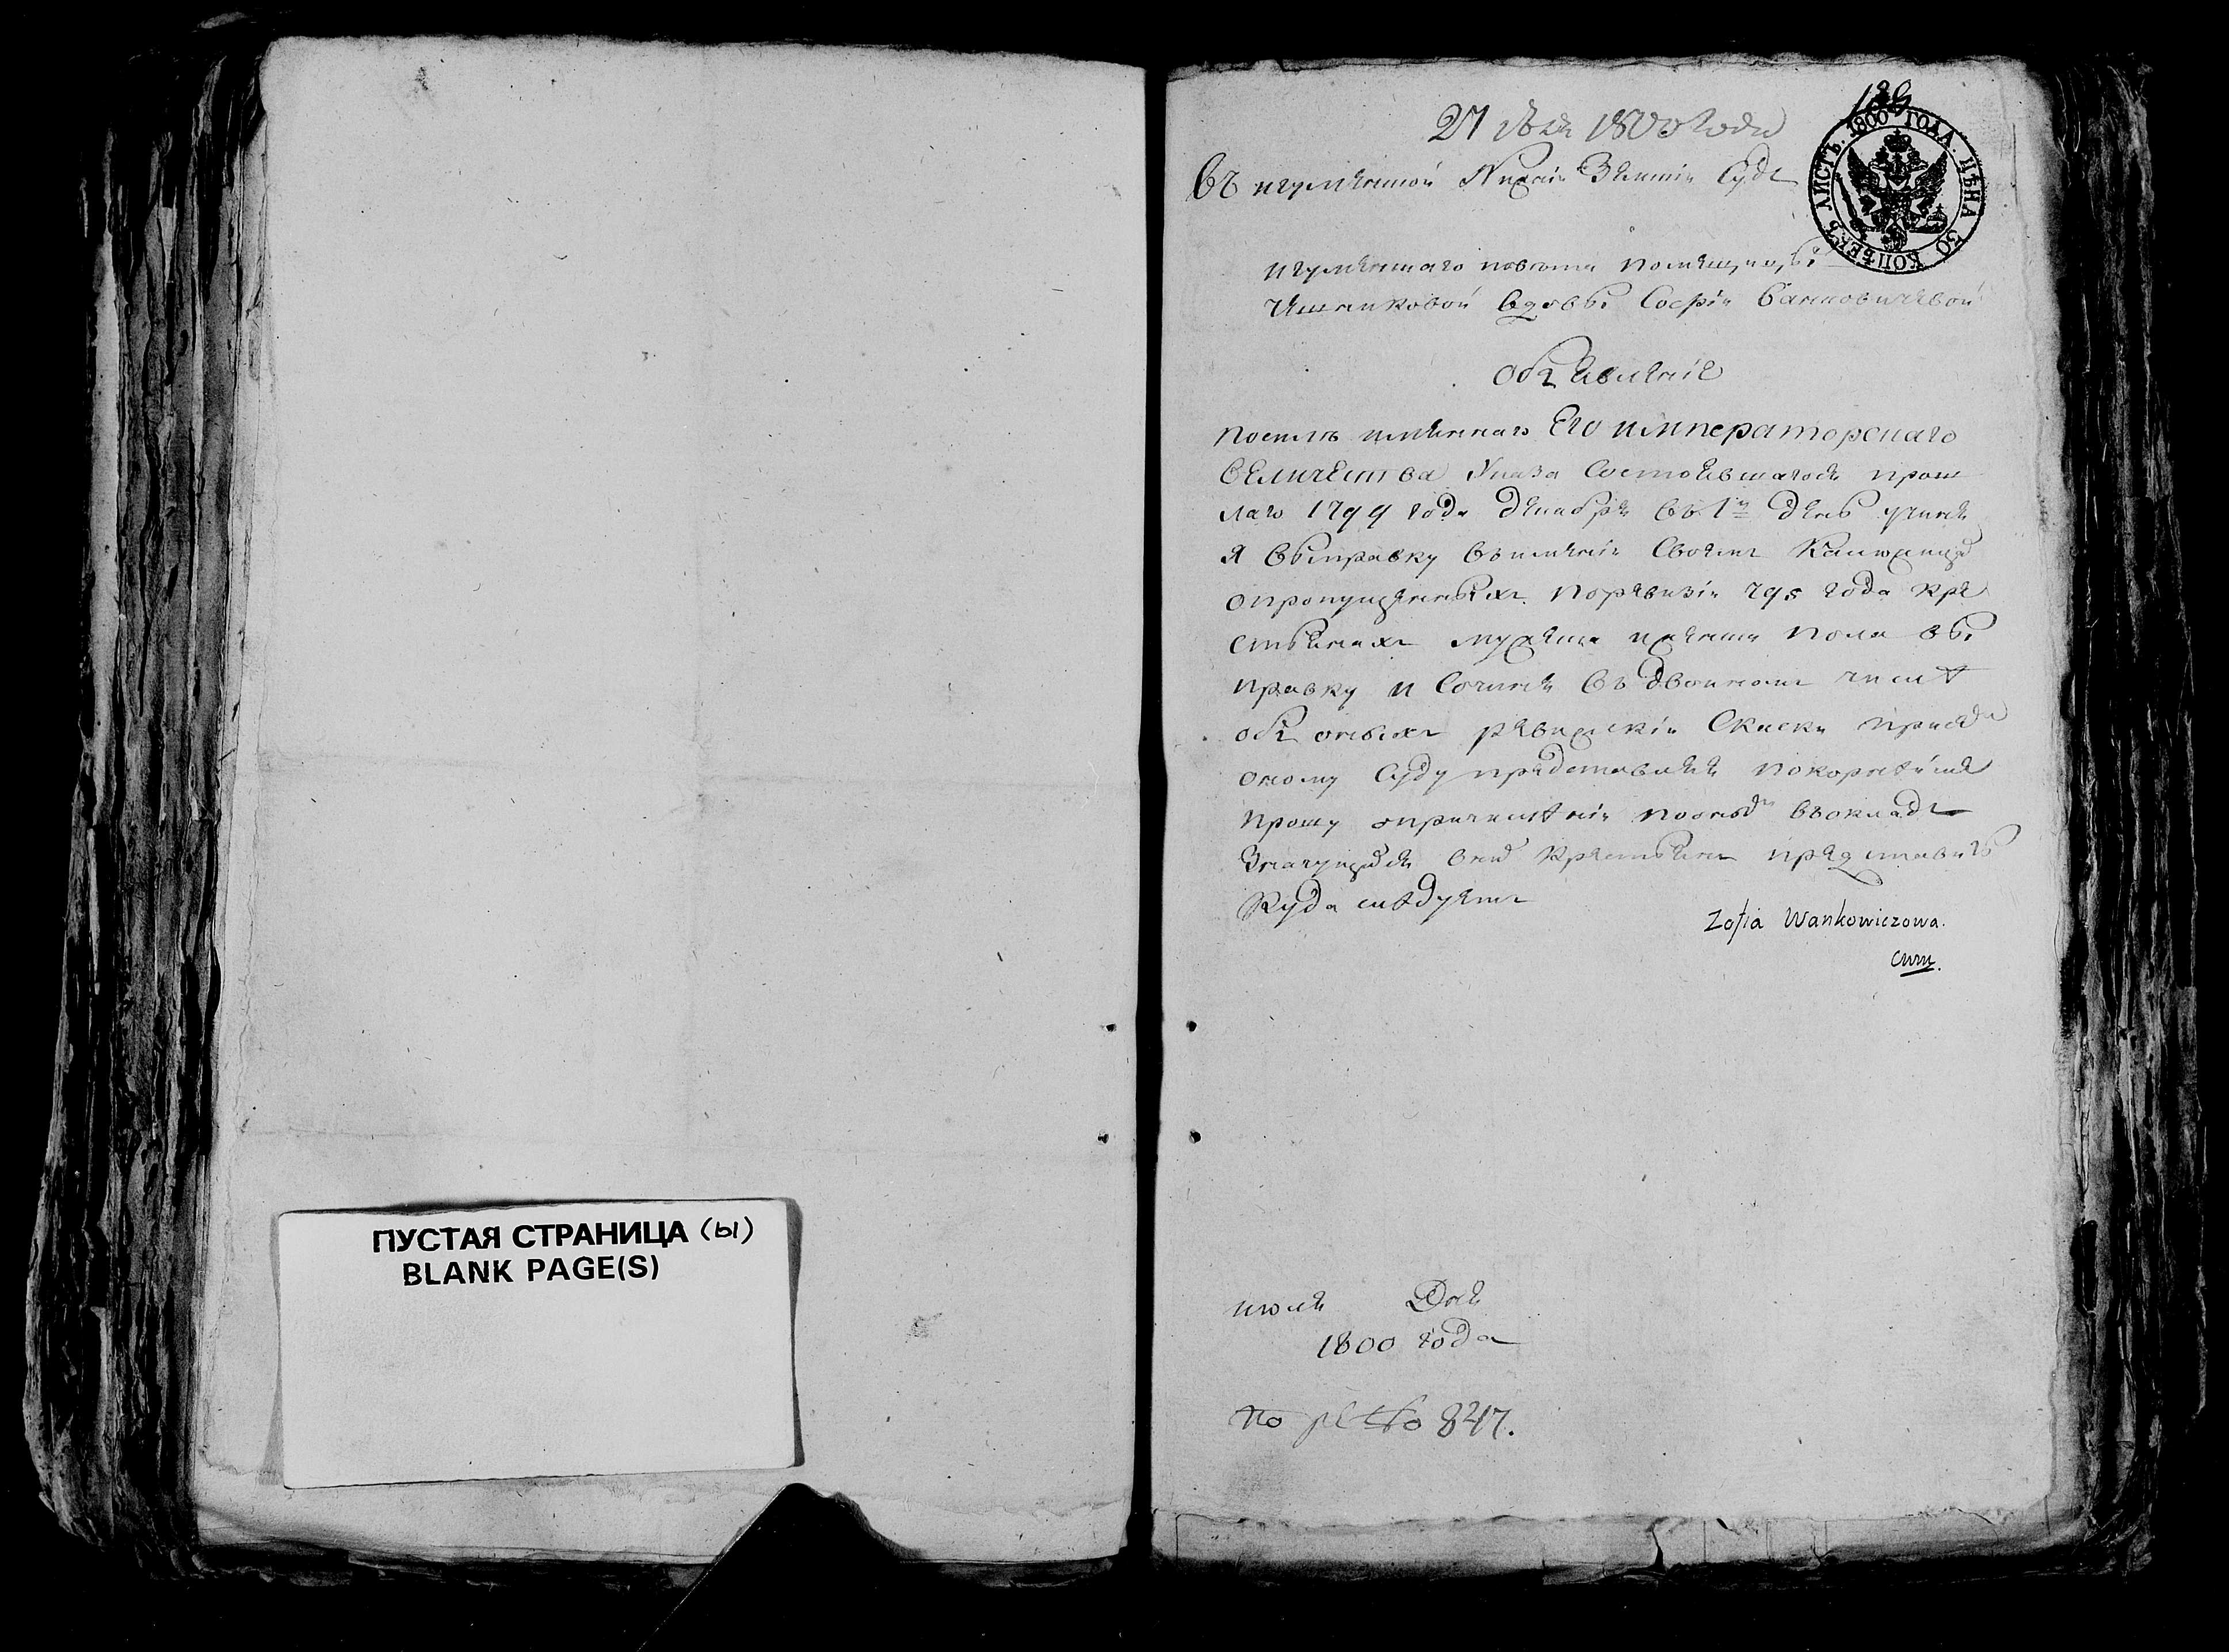 ПУСТАЯ СТРАНИЦА (ы)
BLANK PAGE(S)
139
27 1800 года
ЛИСТЪ. 1800 ГОДА. ЦѢНА 30 КОПѢЕКЪ
Въ игуменской Нижній Земскій Судъ
игуменскаго повета помещицы
Чашниковой вдовы Софіи Ванковичевой
объявленіе
посилѣ имяннаго Его императорскаго
величества Указа Состоявшагося прош
лаго 1799 года декабря въ 1 день учиня
я выправку въимѣніи Своемъ
опропущенныхъ поревизіи 795 года кре
стьянахъ мужеска иженска пола вы
правку и Сочиня въ двойномъ числѣ
объ оныхъ ревижскіи Скаски
оному Суду представляя покорнейше
прошу опричисленіи въокладъ
Значущихся крестьянъ представить
Куда следуетъ
Zofia Wankowiczowa.
июля Дня
1800 года
по № 847.